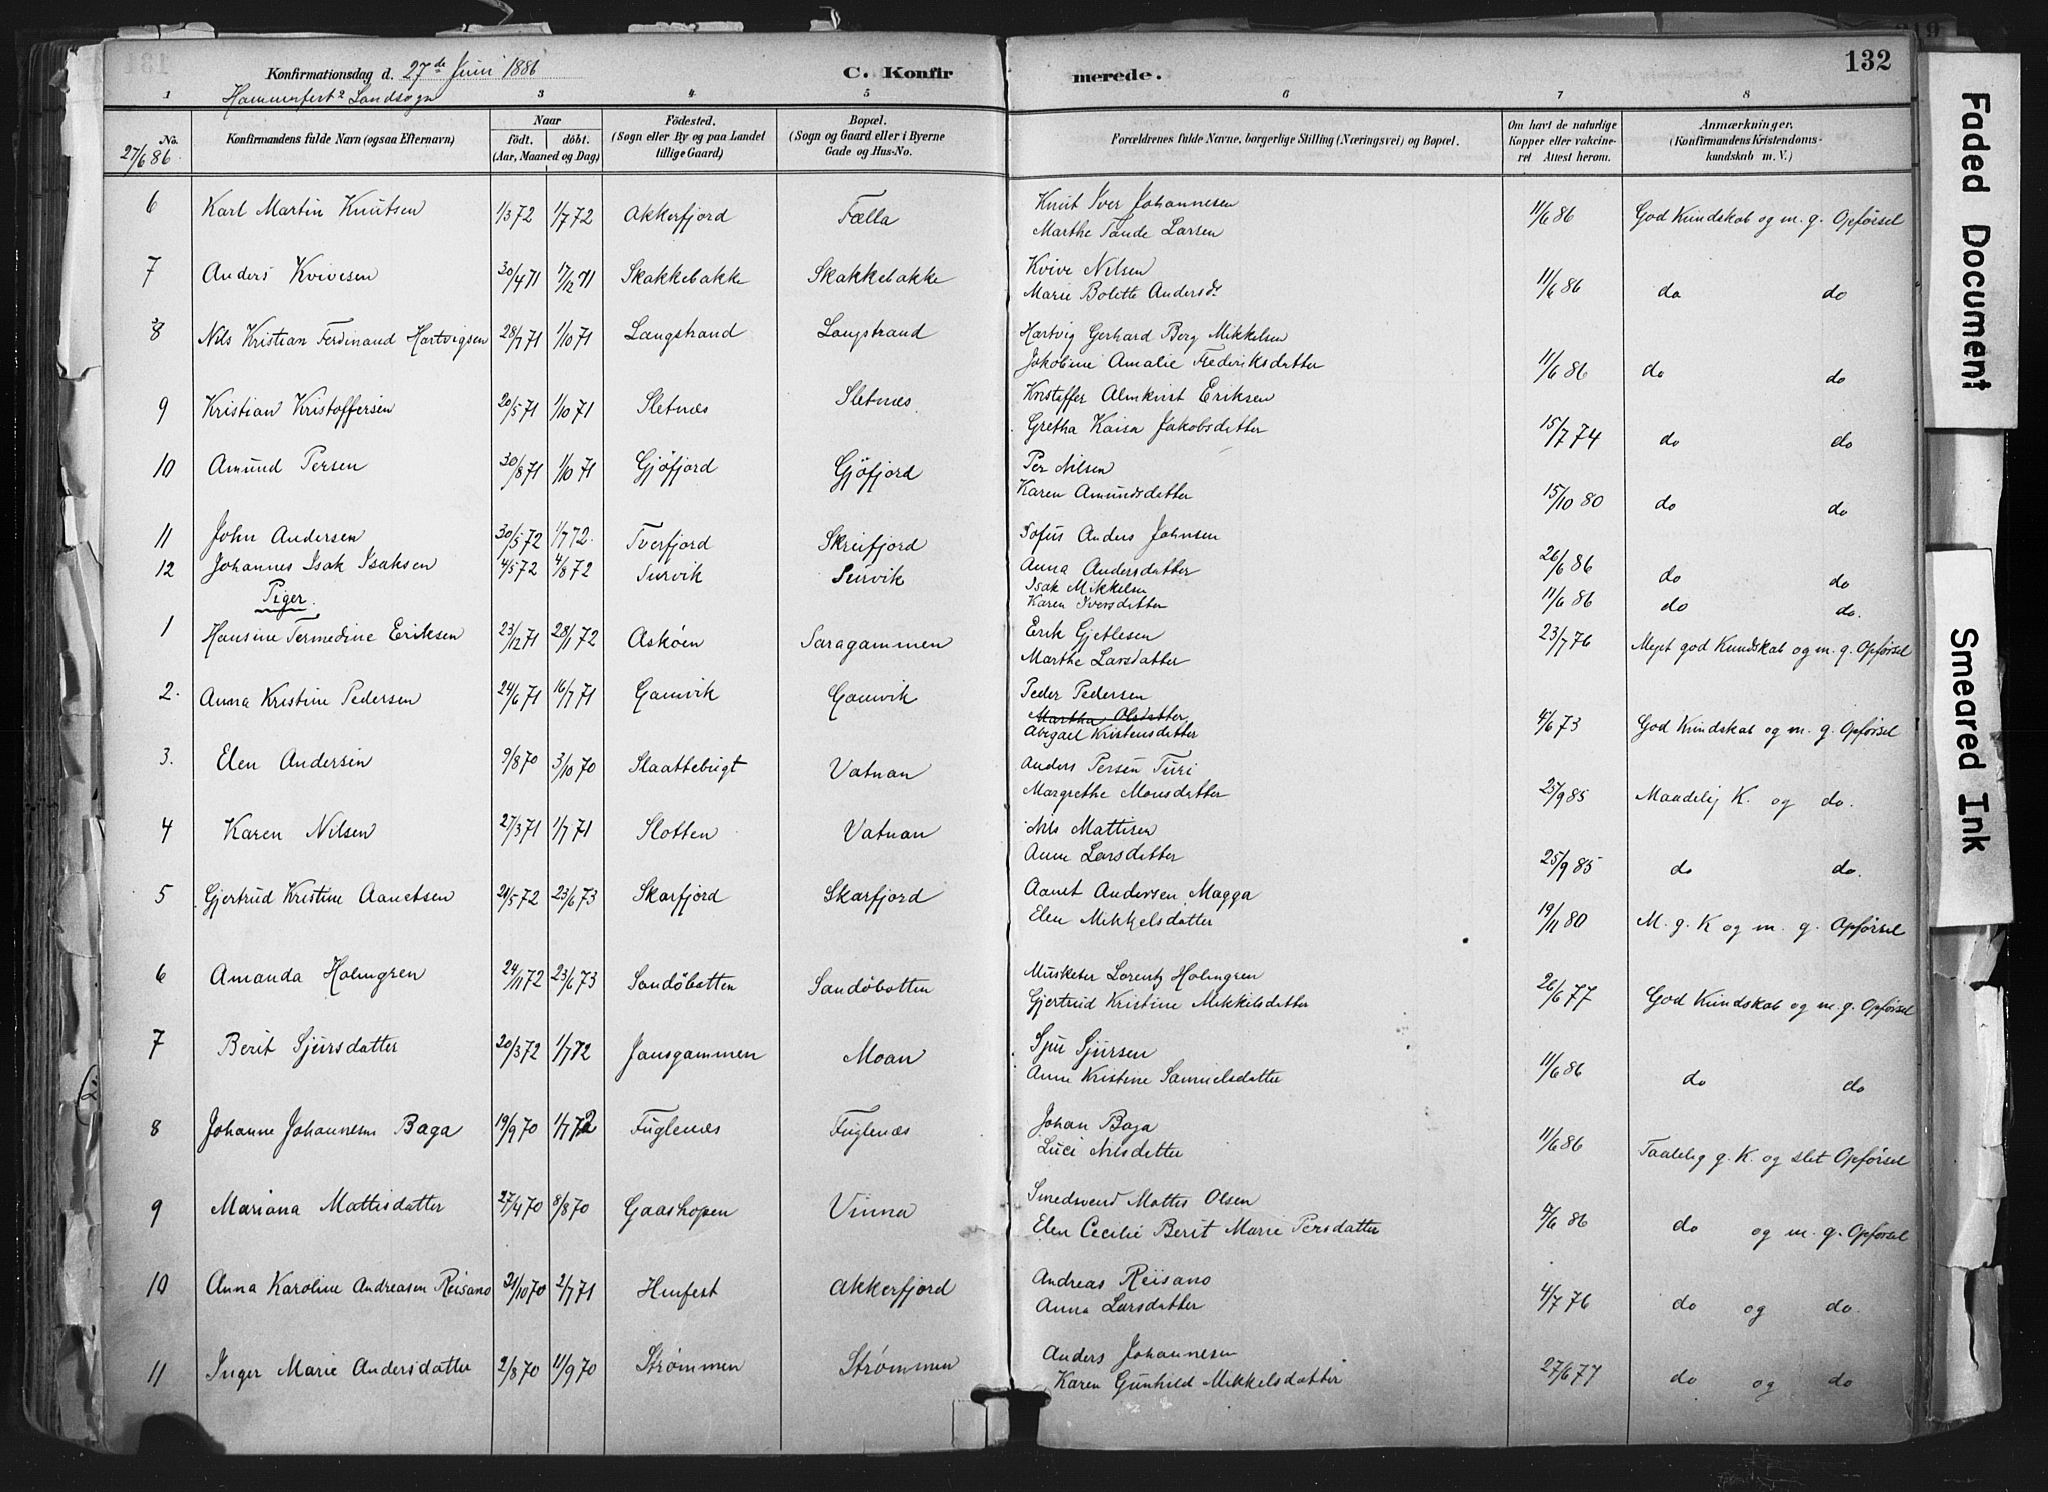 Konfirmationsdag d. 27de Juni 1886 C. Konfirmerede. 132
Hammerfest Landsogn
1 3 4 5 6 7 8
No. Konfirmandens fulde Navn (ogsaa Efternavn) Naar Födested. Bopæl. Forældrenes fulde Navne, borgerlige Stilling (Næringsvei) og Bopæl. Om havt de naturlige Anmærkninger.
27/6 86. födt. döbt. (Sogn eller By og paa Landet (Sogn og Gaard eller i Byerne Kopper eller vakcine- (Konfirmandens Kristendoms-
(Aar, Maaned og Dag) tillige Gaard) Gade og Hus-No. ret Attest herom. kundskab m. V.)
6 Karl Martin Knutsen 1/3 72 1/7 72 Akkerfjord Fælla Knut Iver Johannesen 11/6 86 God Kundskab og m. g. Opførsel
Marthe Tande Larsen
7 Anders Kvivesen 30/4 71 17/12 71 Skakkebakke Skakkebakke Kvive Nilsen
Marie Bolette Andersd. 11/6 86 do do
8 Nils Kristian Ferdinand Hartvigsen 28/7 71 1/10 71 Langstrand Langstrand Hartvig Gerhard Berg Mikkelsen
Jakobine Amalie Frederiksdatter 11/6 86 do do
9 Kristian Kristoffersen 20/5 71 1/10 71 Sletnæs Sletnæs. Kristoffer Almkvist Eriksen
Gretha Kaisa Jakobsdatter 15/7 74 do do
10 Amund Persen 30/8 71 1/10 71 Gjøfjord Gjøfjord Per Nilsen
Karen Amundsdatter 15/10 80 do do
11 John Andersen 30/5 72 1/7 72. Tverfjord Skreifjord Sofus Anders Johnsen
Anna Andersdatter 26/6 86 do do
12 Johannes Isak Isaksen 4/5 72 4/8 72 Survik Survik Isak Mikkelsen
Karen Iversdatter 11/6 86 do do.
Piger.
1 Hansine Termedine Eriksen 23/12 71 28/1 72 Askøen Saragammen Erik Gjetlesen 23/7 76 Meget god Kundskab og m. g. Opførsel
Marthe Larsdatter
2. Anna Kristine Pedersen 24/6 71 16/7 71 Gamvik Gamvik Peder Pedersen
Martha Olsdatter,
Abigael Kristensdatter 4/6 73 God Kundskab og m. g. Opførsel
3. Elen Andersen 9/8 70 3/10 70 Slaattebugt Vatnan Anders Persen Turi
Margrethe Monsdatter 25/9 85 Maadelig K. og do.
4 Karen Nilsen 27/3 71 1/7 71 Slotten Vatnan Nils Mattisen
Anne Larsdatter 25/9 85 do do.
5 Gjertrud Kristine Aanetsen 21/5 72 23/6 73 Skarfjord Skarfjord Aanet Andersen Magga
Elen Mikkelsdatter 19/11 80 M. g. K og m. g. Opførsel
6 Amanda Holmgren 24/11 72 23/6 73 Sandøbotten Sandøbotten Musketer Lorentz Holmgren
Gjertrud Kristine Mikkelsdatter 26/6 77 God Kundskab og m. g. Opførsel
7 Berit Sjursdatter 20/3 72 1/7 72 Jansgammen Moan Sjur Sjursen
Anne Kristine Samuelsdatter 11/6 86 do do
8 Johanne Johannesen Baga 19/9 70 1/7 72 Fuglenæs Fuglenæs Johan Baga
Luci Nilsdatter 11/6 86 Taalelig g. K. og slet Opførsel
9 Mariana Mattisdatter 27/4 70 8/8 70 Gaashopen Vinna Smedsvend Mattis Olsen
Elen Cecilie Berit Marie Persdatter 4/6 86 do og m. g. Opførsel
10 Anna Karoline Andreasen Reisano 21/10 70 2/7 71 Hmfest Akkerfjord Andreas Reisano
Anna Larsdatter 4/7 76 do og do.
11 Inger Marie Andersdatter 2/8 70 11/9 70 Strømmen Strømmen Anders Johannesen
Karen Gunhild Mikkelsdatter 27/6 77 do og do
Faded Document
Smeared Ink